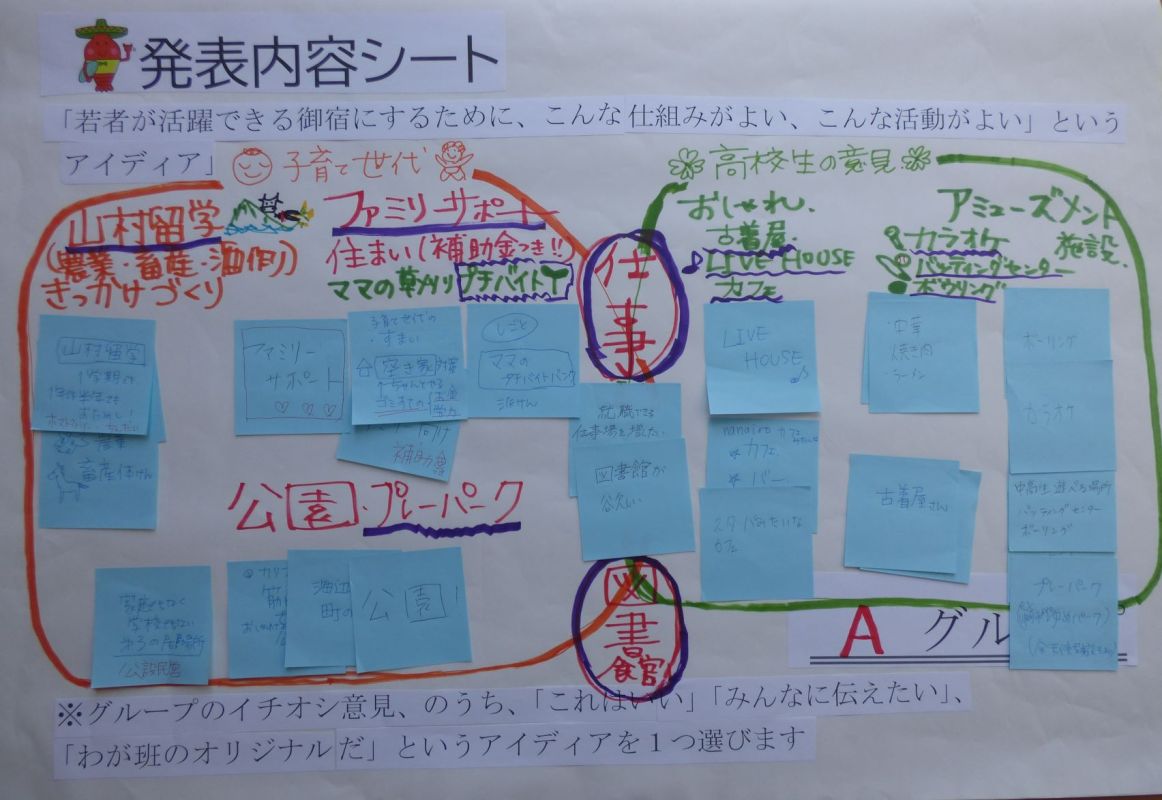 発表内容シート
「若者が活躍できる御宿にするために、こんな仕組みがよい、こんな活動がよい」という
アイディア」
子育て世代
山村留学
(農業・畜産・酒作り)
きっかけづくり
ファミリーサポート
住まい(補助金つき!!)
ママの草刈りプチバイト
公園・プレーパーク
仕事
図書館
高校生の意見
おしゃれ.
古着屋.
LIVE HOUSE
カフェ
アミューズメント
施設.
カラオケ
バッティングセンター
ボウリング
山村留学
1学期で
畜産体けん
ファミリー
サポート
子育て世代の
・すまい
補助
しごと
ママの
プチバイトバンク
派けん
就職できる
仕事場を増やしたい.
図書館が
欲しい
LIVE
HOUSE
nanairoカフェ
カフェ.
バー.
スタバみたいな
カフェ
・中華
・焼き肉
・ラーメン
古着屋さん
ボーリング
カラオケ
中高生遊べる場所
バッティングセンター
ボーリング
プレーパーク
家庭でもなく
学校でもない
第3の居場所
公設民営
海辺
町の
公園
A グル
※グループのイチオシ意見、のうち、「これはいい」「みんなに伝えたい」、
「わが班のオリジナルだ」というアイディアを1つ選びます